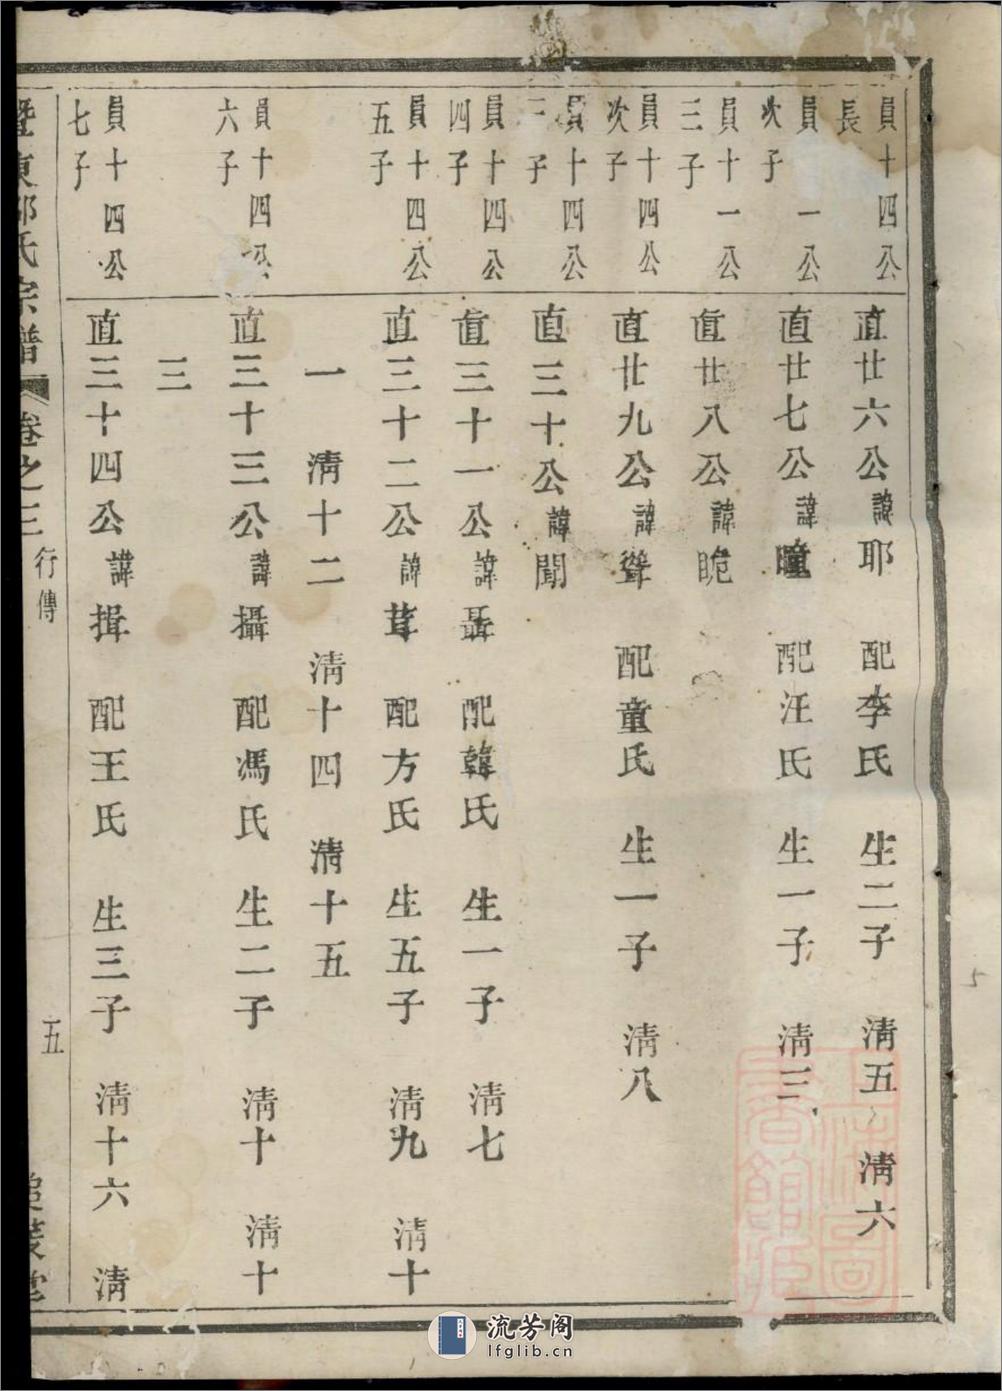 員十四公
長
直廿六公諱耶 配李氏 生二子 清五 清六
員一公
次子
直廿七公諱曈 配汪氏 生一子 清三
員十一公
三子
直廿八公諱脆
員十四公
次子
直廿九公諱聳 配童氏 生一子 清八
員十四公
三子
直三十公諱聞
員十四公
四子
直三十一公諱聶 配韓氏 生一子 清七
員十四公
五子
直三十二公諱茸 配方氏 生五子 清九 清十
一 清十二 清十四 清十五
員十四公
六子
直三十三公諱攝 配馮氏 生二子 清十 清十
三
員十四公
七子
直三十四公諱揖 配王氏 生三子 清十六 清
暨東郭氏宗譜 卷之三 行傳 五
流芳阁
lfglib.cn